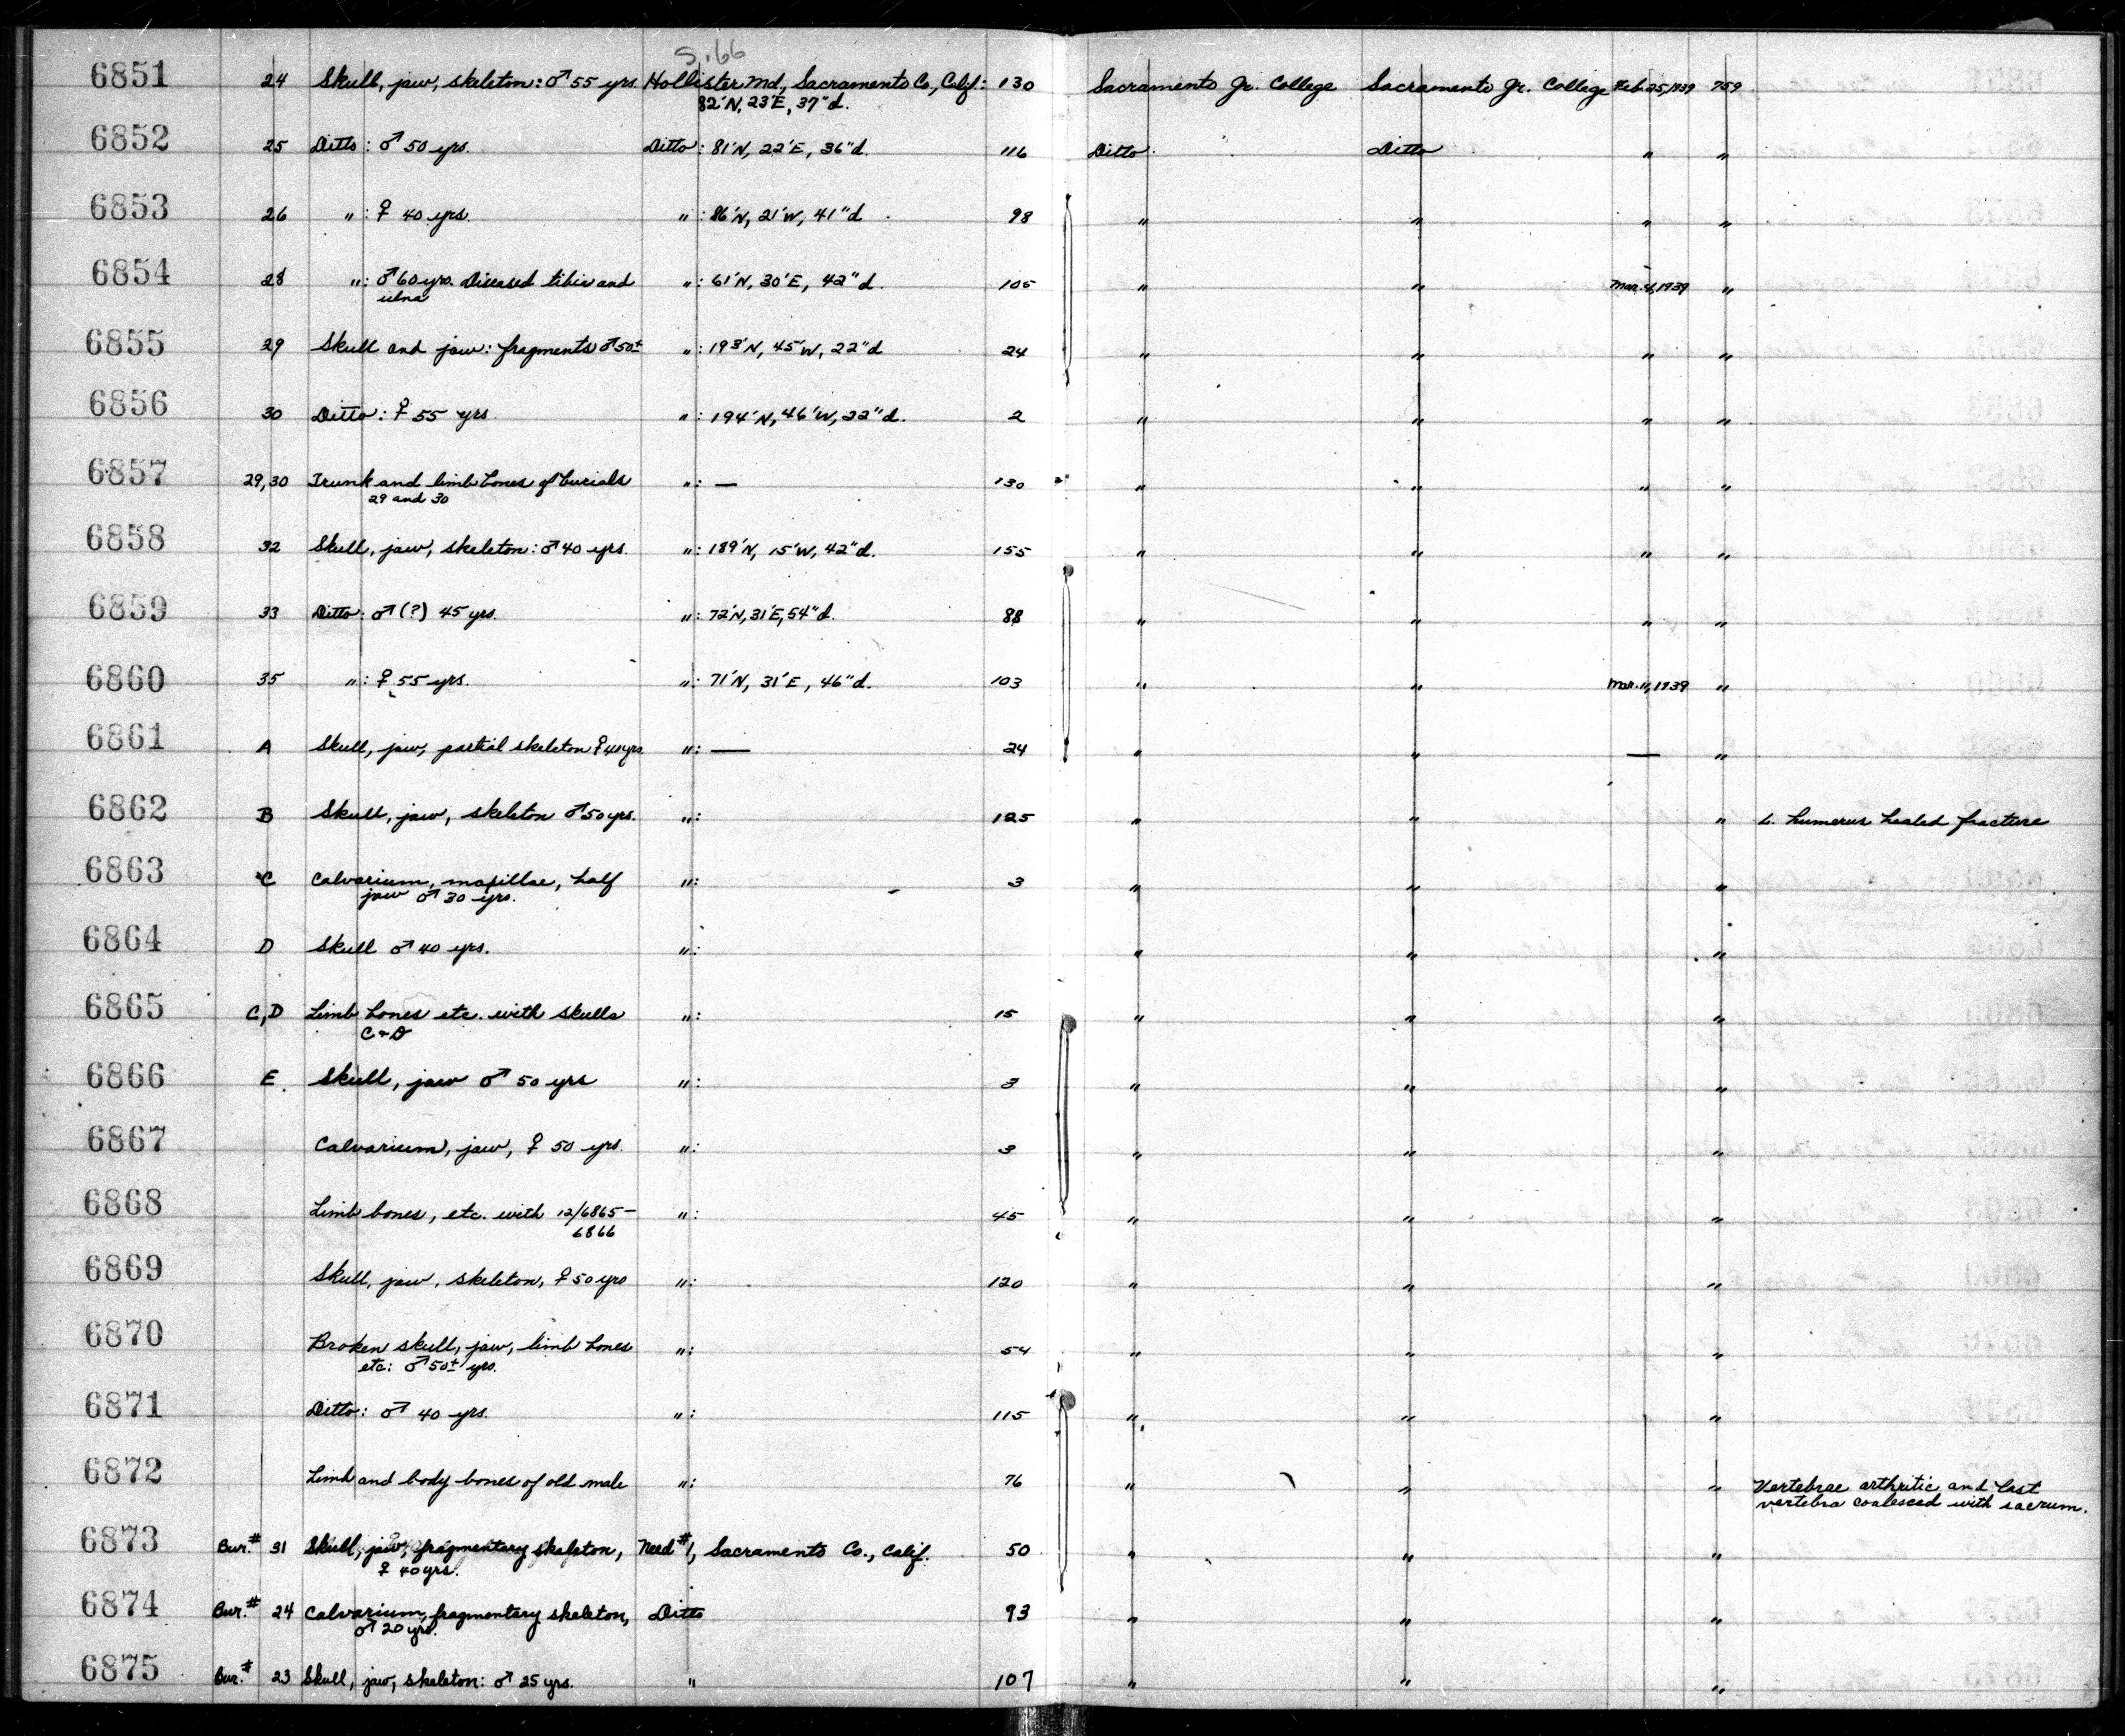 S.66
6851 24 Skull, jaw, skeleton: ♂ 55 yrs. Hollister Md, Sacramento Co, Calif.: 130 Sacramento Jr. College Sacramento Jr. College Feb. 25, 1939 759
82'N, 23'E, 37"d.
6852 25 Ditto: ♂ 50 yrs. Ditto: 81'N, 22'E, 36"d. 116 Ditto Ditto " "
6853 26 ": ♀ 40 yrs. ": 86'N, 21'W, 41"d 98 " " " "
6854 28 ": ♂ 60 yrs. Diseased tibia and ": 61'N, 30'E, 42"d. 105 " " Mar. 4, 1939 "
ulna
6855 29 Skull and jaw: fragments ♂ 50± ": 193'N, 45'W, 22"d 24 " " " "
6856 30 Ditto: ♀ 55 yrs. ": 194'N, 46'W, 22"d. 2 " " " "
6857 29,30 Trunk and limb bones of burials ": — 130 " " " "
29 and 30
6858 32 Skull, jaw, skeleton: ♂ 40 yrs. ": 189'N, 15'W, 42"d. 155 " " " "
6859 33 Ditto: ♂ (?) 45 yrs. ": 72'N, 31'E, 54"d. 88 " " " "
6860 35 ": ♀ 55 yrs. ": 71'N, 31'E, 46"d. 103 " " Mar. 11, 1939 "
6861 A Skull, jaw, partial skeleton ♀ 40 yrs. ": — 24 " " — "
6862 B Skull, jaw, skeleton ♂ 50 yrs. ": 125 " " " L. humerus healed fracture
6863 C Calvarium, maxillae, half ": 3 " " "
jaw ♂ 30 yrs.
6864 D Skull ♂ 40 yrs. ": " " "
6865 C,D Limb bones etc. with skulls ": 15 " " "
C + D
6866 E. Skull, jaw ♂ 50 yrs ": 3 " " "
6867 Calvarium, jaw, ♀ 50 yrs. ": 3 " " "
6868 Limb bones, etc. with 12/6865– ": 45 " " "
6866
6869 Skull, jaw, skeleton, ♀ 50 yrs ": 120 " " "
6870 Broken skull, jaw, limb bones ": 54 " " "
etc: ♂ 50± yrs.
6871 Ditto: ♂ 40 yrs. ": 115 " " "
6872 Limb and body bones of old male ": 76 " " " Vertebrae arthritic and last
vertebra coalesced with sacrum.
6873 Bur.# 31 Skull, jaw, fragmentary skeleton, Need #1, Sacramento Co., Calif. 50 " " "
♀ 40 yrs.
6874 Bur.# 24 Calvarium, fragmentary skeleton, Ditto 93 " " "
♂ 20 yrs.
6875 Bur.# 23 Skull, jaw, skeleton: ♂ 25 yrs. " 107 " " "